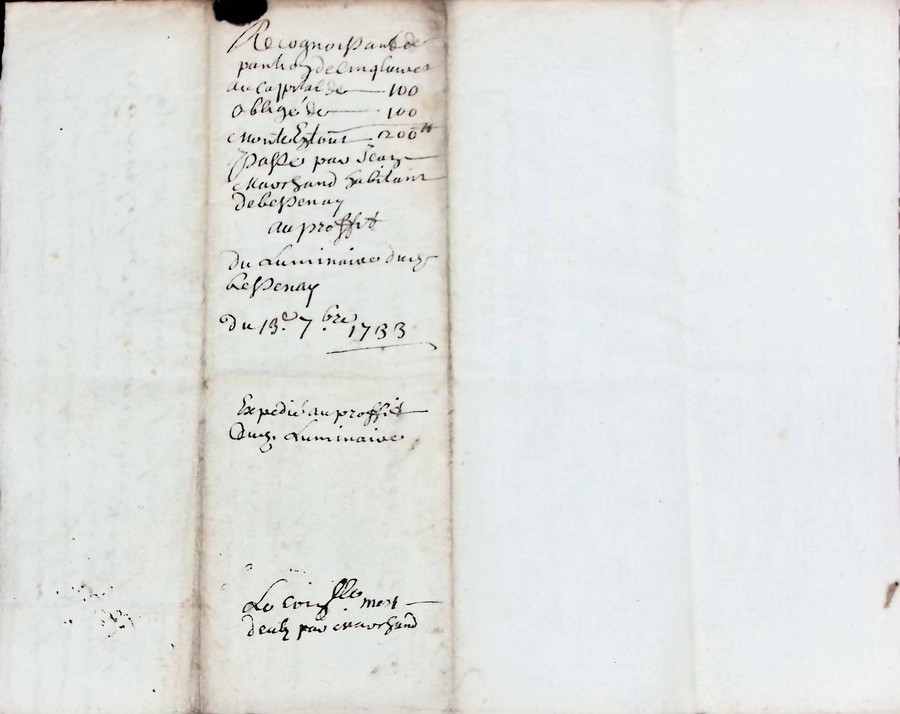 Recognoissant de
pention de cinq livres
au capital de — 100
obligé de — 100
monte En tout — 200 ₶
Passé par Jean
Marchand habitant
de bessenay
au proffit
du Luminaire dud.
bessenay
Du 13e 7bre 1733
Expedié au proffit
Dud. Luminaire
Le
deub par marchand